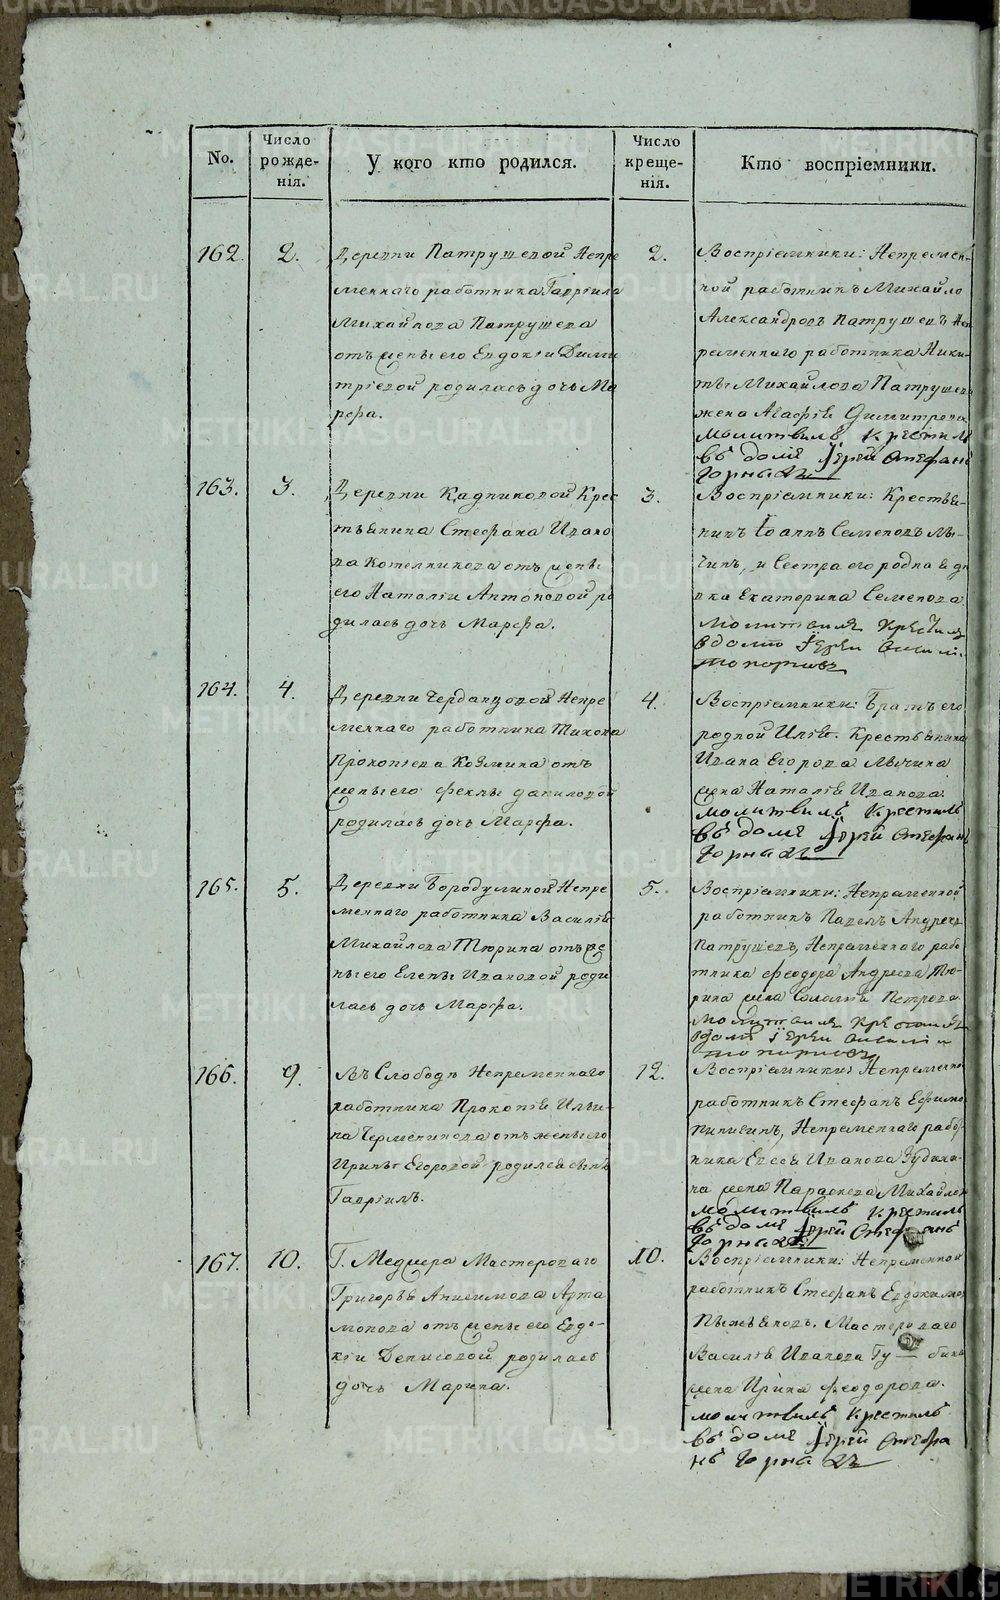 No.
Число рожде- нія.
У кого кто родился.
Число креще- нія.
Кто воспріемники.
162.
2.
Деревни Патрушевой Непре
меннаго работника Гавріила
Михайлова Патрушева
отъ жены его Евдокіи Дими
тріевой родилась дочь Ма
рфа.
2.
Воспріемники: Непремен-
ной работникъ Михайло
Александровъ Патрушевъ Неп
ременнаго работника Ники-
ты Михайлова Патрушева
жена Агафія Димитрева
молитвилъ, крестилъ
въ доме Іерей Стефанъ
163.
3.
Деревни Кадниковой Крес
тьянина Стефана Ивано
ва Котелникова отъ жены
его Наталіи Антоновой ро
дилась дочь Марфа.
3.
Воспріемники: Крестья-
нинъ Іоаннъ Семеновъ Лы-
чинъ, и Сестра его родна я дѣ
вка Екатерина Семенова
молитвилъ крестилъ
вдомѣ Іереи
топорковъ
164.
4.
Деревни Чердынцовой Непре
меннаго работника Тихона
Прокопіева Козмина отъ
жены его Феклы даниловой
родилась дочь Марфа.
4.
Воспріемники: Братъ его
родной Илія. Крестьянина
Ивана Егорова Лычина
жена Наталія Иванова.
молитвилъ крестилъ
въ доме Іерей Стефанъ
165.
5.
Деревни Бородулиной Непре
меннаго работника Василія
Михайлова Тюрина отъ же
ны его Елены Ивановой роди
лась дочь Марфа.
5.
Воспріемники: Непременной
работникъ Павелъ Андреевъ
Патрушевъ, Непременнаго рабо
тника Феодора Андреева Тю-
рина жена Петрова
молитвилъ крестилъ
Іереи
топорковъ
166.
9.
Въ Слободѣ Непременнаго
работника Прокопія Ильи-
на Черменинова отъ жены его
Ирины Егоровой родился сынъ
Гавріилъ.
12.
Воспріемники: Непременно
работникъ Стефанъ Ефимо
Непременнаго рабо
ника Евсея Иванова Зубаки-
на жена Параскева Михайлова
молитвилъ крестилъ
въ доме Іерей Стефанъ
167.
10.
Г. Меджера Мастероваго
Григорья Анисимова Арта
монова отъ жены его Евдо-
кіи Денисовой родилась
дочь Марина.
10.
Воспріемники: Непременной
работникъ Стефанъ Евдокимов
Пьянковъ. Мастероваго
Василія Иванова Гу — бина
жена Ирина Феодорова.
молитвилъ крестилъ
въ доме Іерей Стефа
METRIKI.GASO-URAL.RU